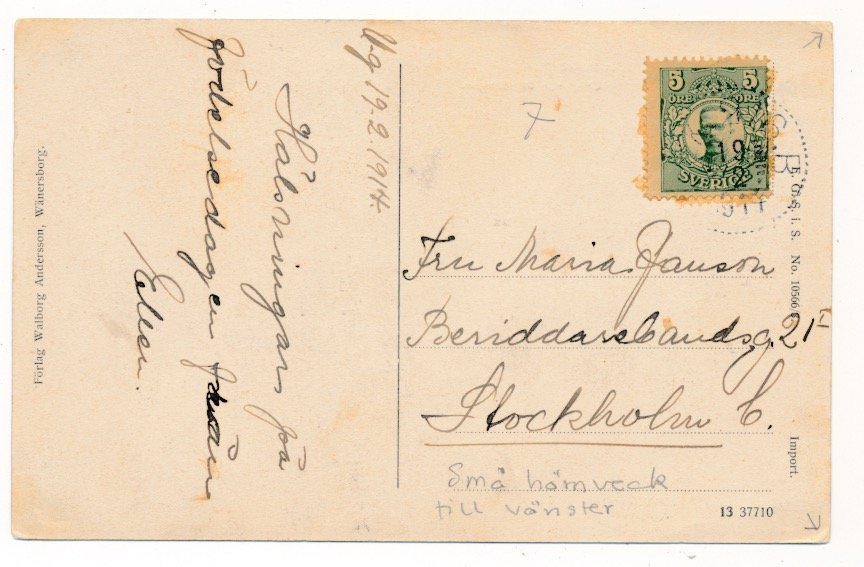 Vg 19.2.1914.
Hälsningar på
födelsedagen från
Ellen.
Förlag Walborg Andersson, Wänersborg.
7
5 5
ÖRE ÖRE
SVERIGE
19
Fru Maria Janson
Beriddarebansg. 21 I
Stockholm C.
Små hörnveck
till vänster
13 37710
E. G. S. i. S. No. 10566
Import.